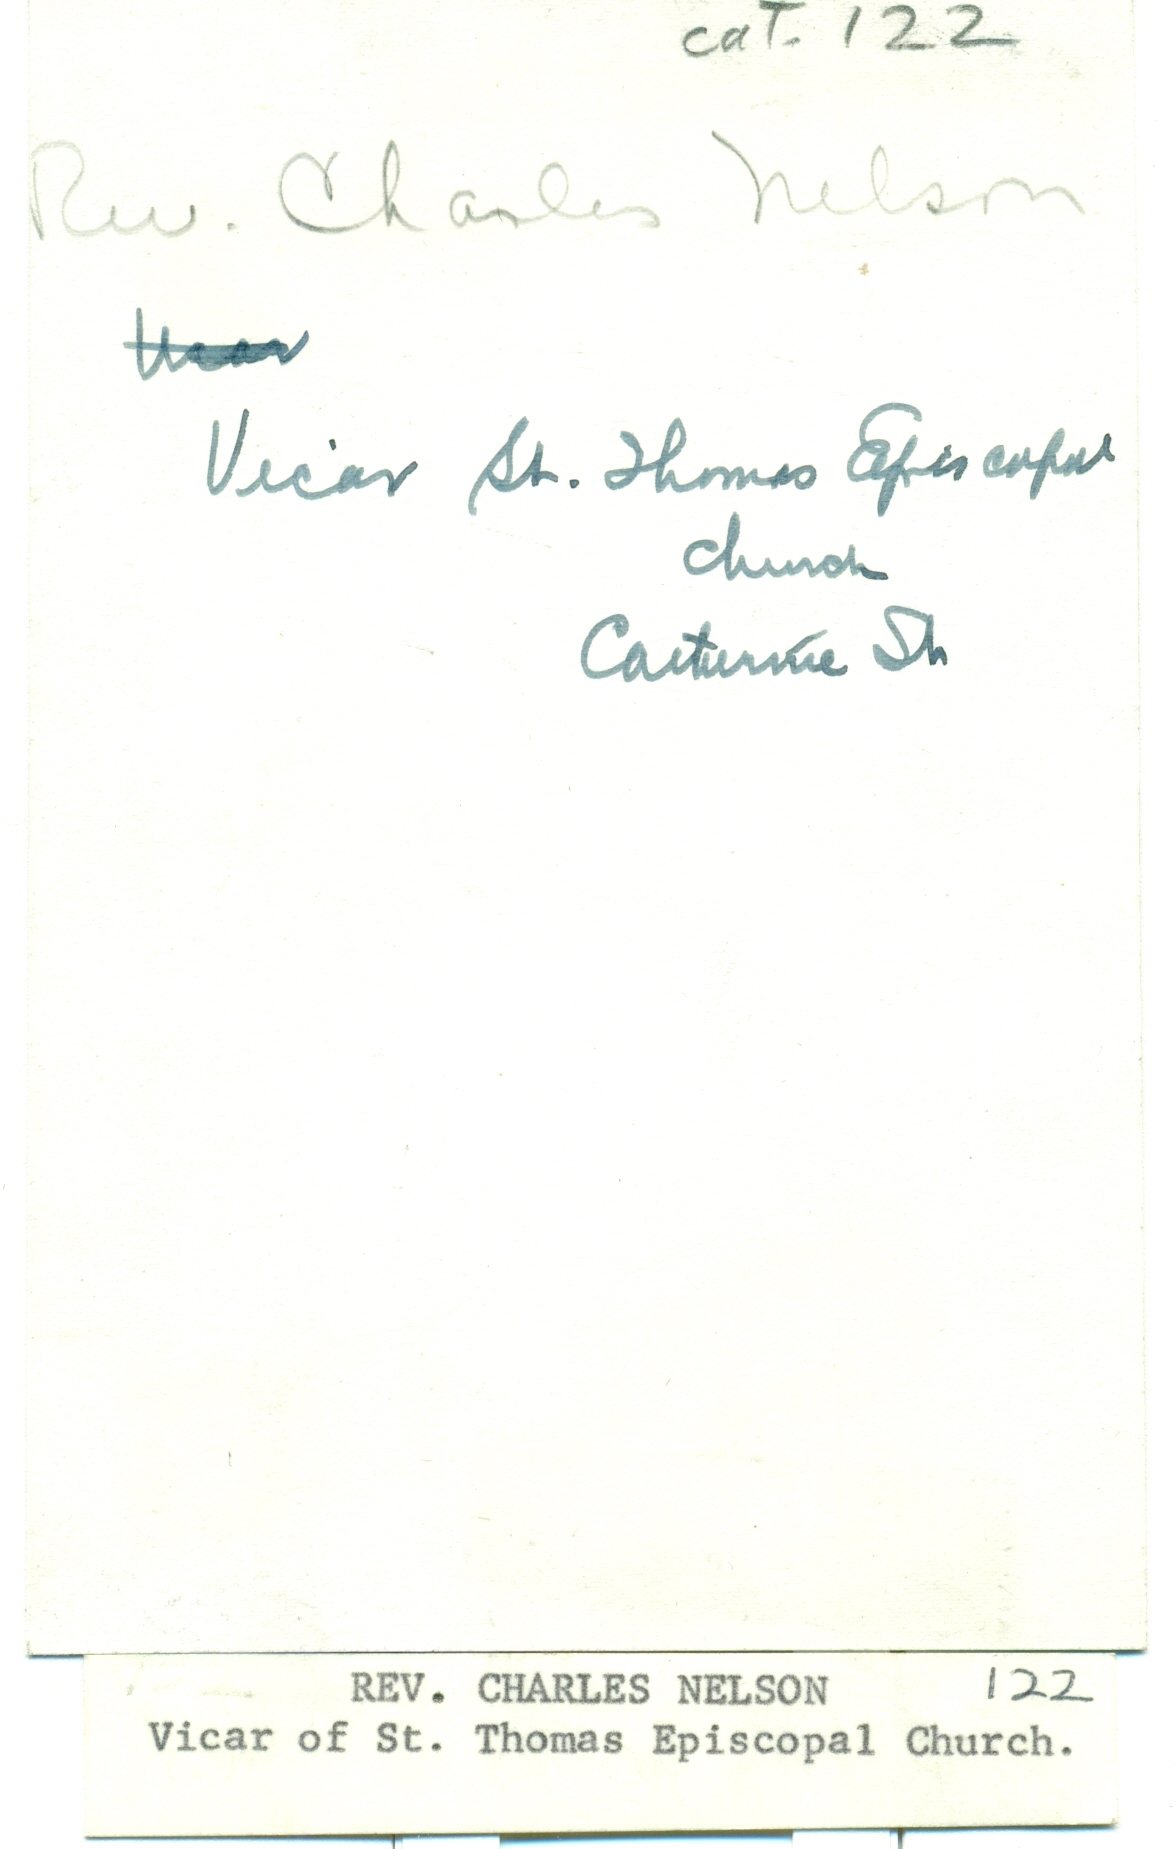 cat. 122
Rev. Charles Nelson
Vicar St. Thomas Episcopal
Church
Catherine St
REV. CHARLES NELSON 122
Vicar of St. Thomas Episcopal Church.